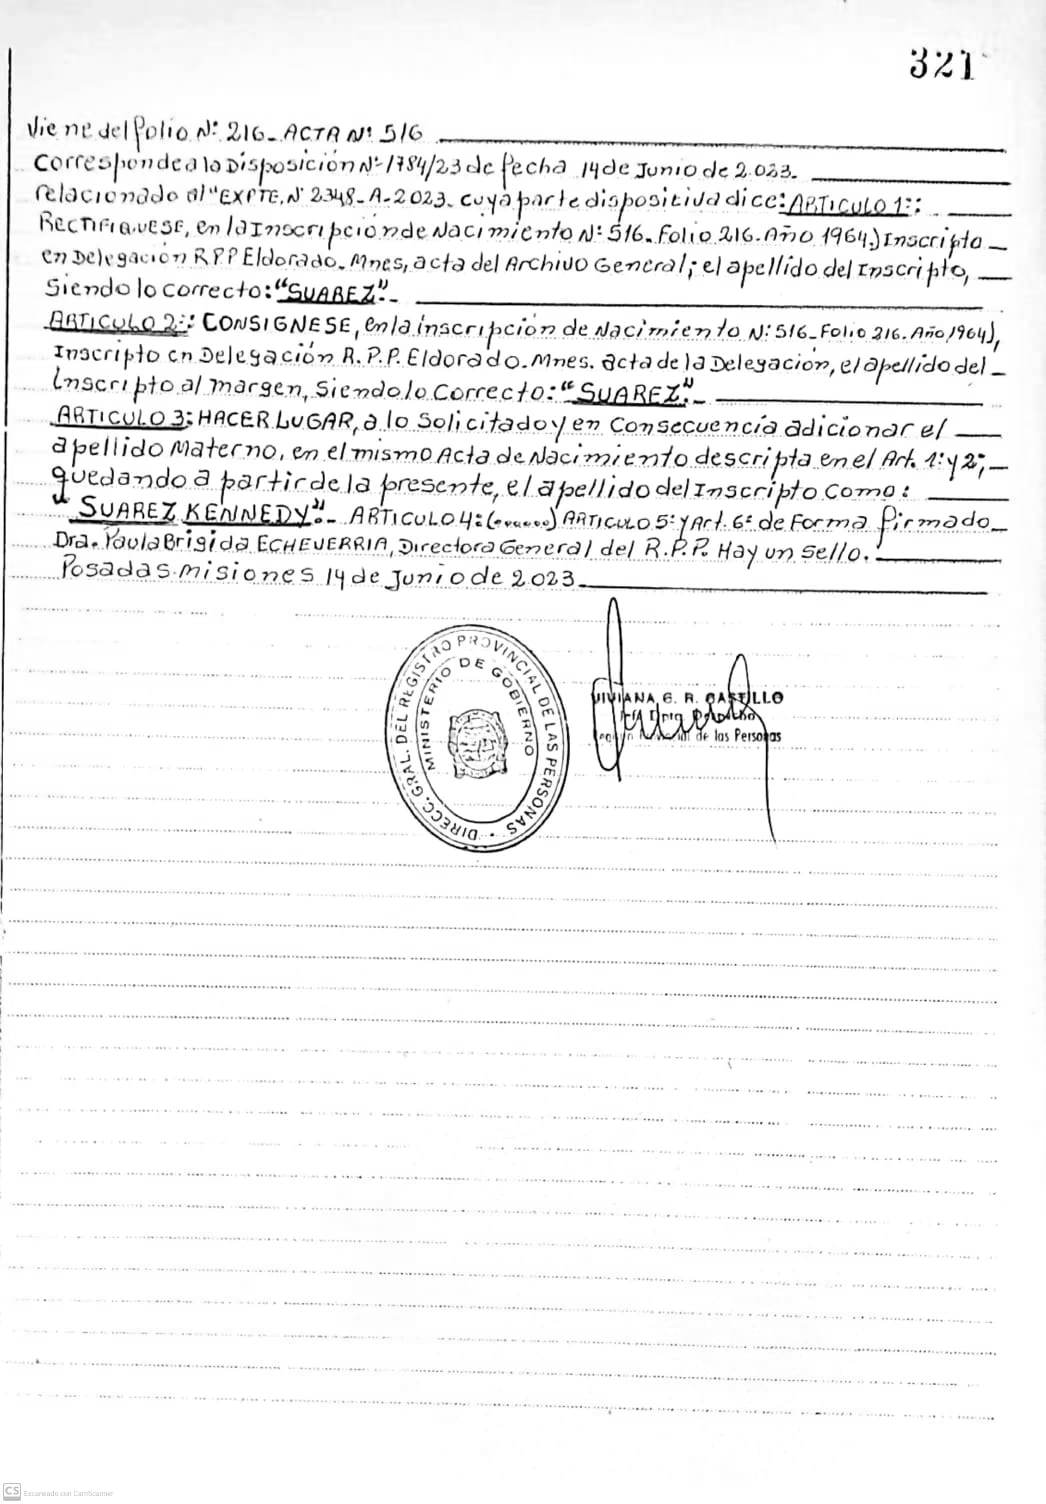 321
Viene del folio Nº 216_ ACTA Nº 516
Corresponde a la Disposición Nº 1784/23 de fecha 14 de Junio de 2.023._
relacionado al "EXPTE. Nº 2348_A_2023_ cuya parte dispositiva dice: ARTICULO 1º:
RECTIFIQUESE, en la Inscripción de Nacimiento Nº 516_Folio 216. Año 1964.) Inscripto_
en Delegación RPP Eldorado_Mnes, acta del Archivo General; el apellido del Inscripto,
Siendo lo correcto: "SUAREZ"._
ARTICULO 2º: CONSIGNESE, en la inscripción de Nacimiento Nº 516_Folio 216. Año 1964),
Inscripto en Delegación R.P.P. Eldorado_Mnes. acta de la Delegación, el apellido del_
Inscripto al margen, Siendo lo Correcto: "SUAREZ"._
ARTICULO 3: HACER LUGAR, a lo Solicitado y en Consecuencia adicionar el
apellido Materno, en el mismo Acta de Nacimiento descripta en el Art. 1º y 2º;_
quedando a partir de la presente, el apellido del Inscripto Como:
"SUAREZ KENNEDY"._ ARTICULO 4: (.......) ARTICULO 5º y Art. 6º de Forma firmado_
Dra. Paula Brigida ECHEVERRIA, Directora General del R.P.P. Hay un Sello.
Posadas Misiones 14 de Junio de 2.023_
DIRECC. GRAL. DEL REGISTRO PROVINCIAL DE LAS PERSONAS
MINISTERIO DE GOBIERNO
VIVIANA G. R. CASTILLO
de las Personas
CS Escaneado con CamScanner